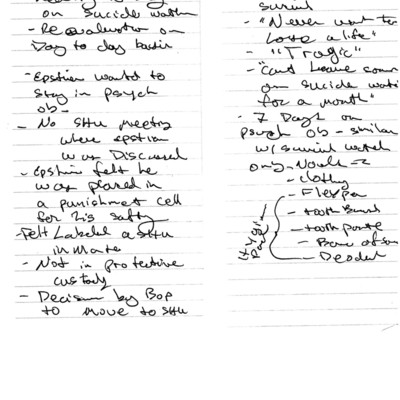 on suicide watch
- Reevaluation on
Day to day basis
- Epstien wanted to
stay in psych
ob-
- No SHU meeting
where epstien
was Discussed
- Epstien felt he
was placed in
a punishment cell
for his safty
Felt Labeled a SHU
inmate
- Not in protective
custody
- Decision by Bop
to move to SHU
- "Never want to
Lose a life"
- "Tragic"
- "Can't Leave some
on suicide watch
for a month"
- 7 Days on
psych ob - similar
w/ suicide watch
only
- clothing
- Flex pen
- tooth brush
- tooth paste
- Deodor